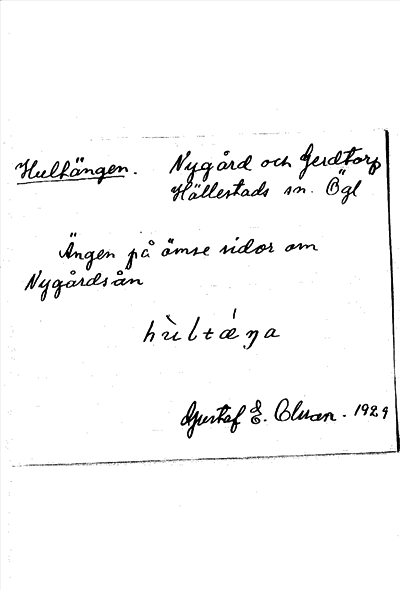 Hultängen. Nygård och Gerdtorp
Hällestads sn. Ögl
Ängen på ömse sidor om
Nygårdsån
hùltǽŋa
Gustaf E. Olson. 1929